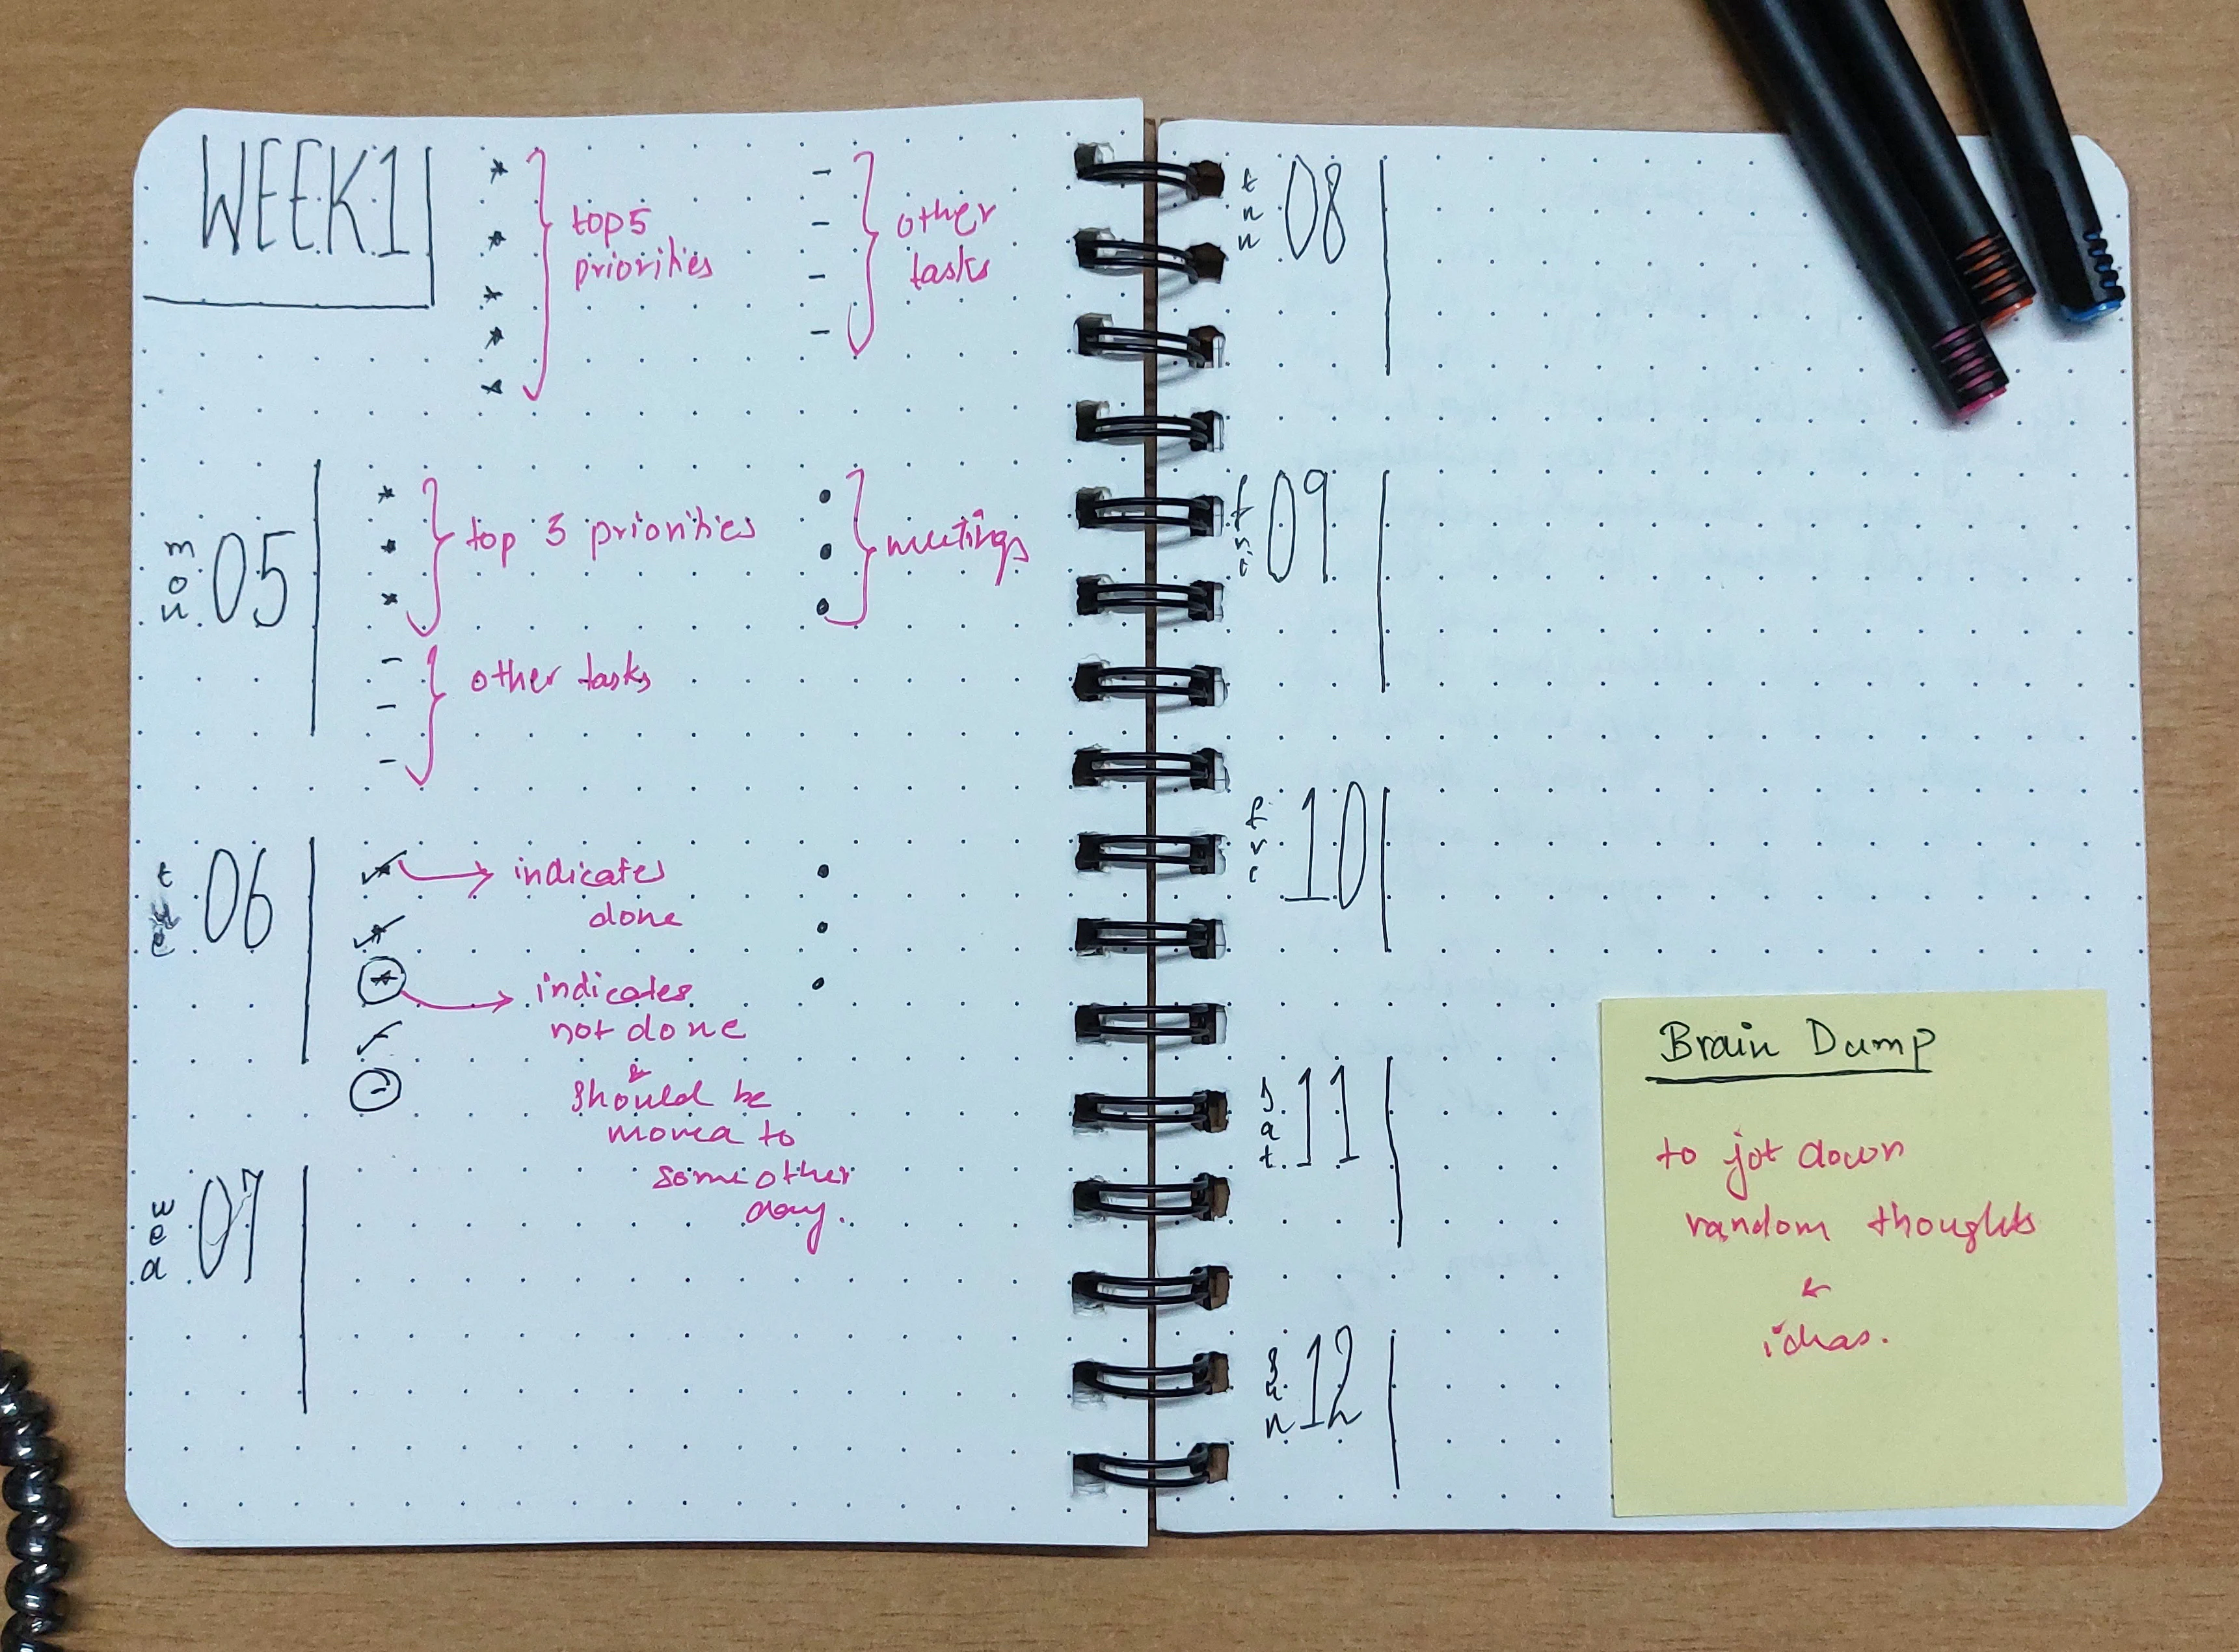 WEEK 1
top 5
priorities
other
tasks
mon 05
top 3 priorities
meetings
other tasks
06
indicates
done
indicates
not done
&
should be
moved to
some other
day.
wed 07
08
fri 09
10
sat 11
sun 12
Brain Dump
to jot down
random thoughts
&
ideas.